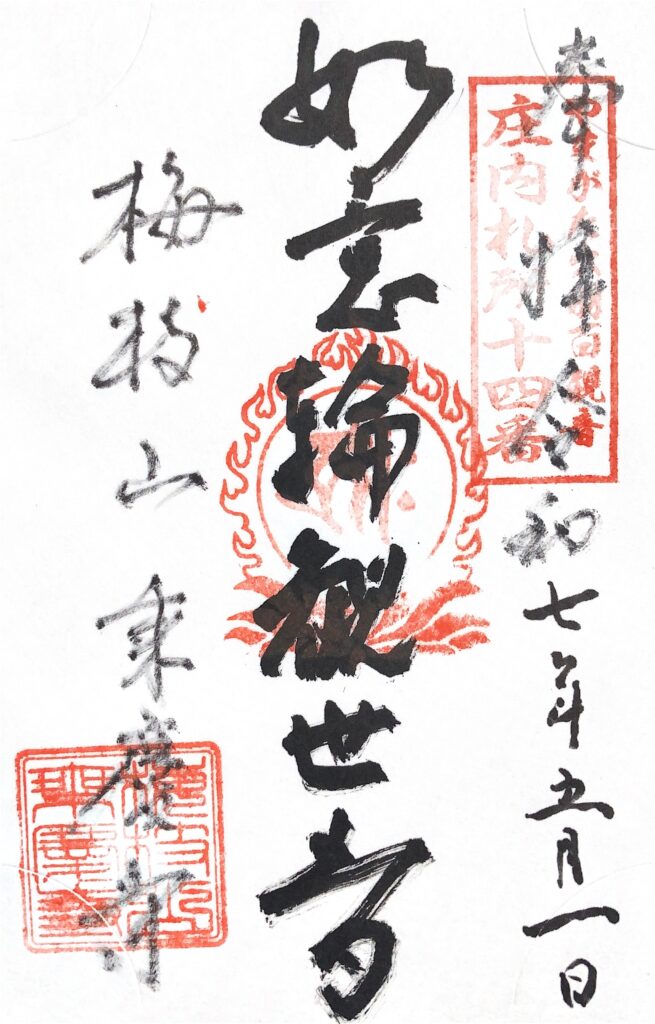 奉拝
令和七年五月一日
庄内札所十四番
如意輪観世音
梅枝山乗慶寺